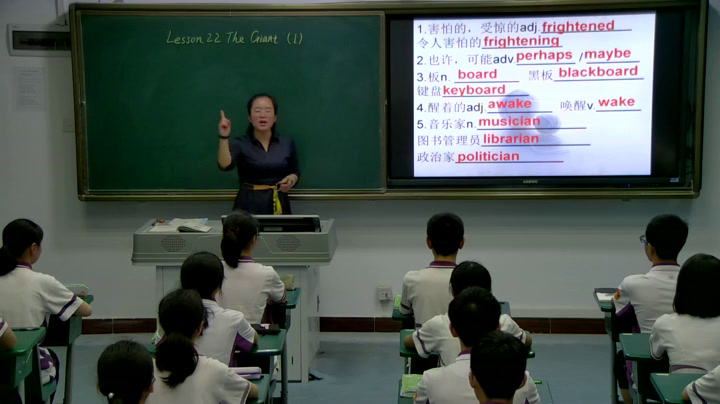 Lesson 22 The Giant (1)
1.害怕的，受惊的adj.frightened
令人害怕的frightening
2.也许，可能adv.perhaps /maybe
3.板n. board 黑板 blackboard
键盘keyboard
4.醒着的adj.awake 唤醒v. wake
5.音乐家n.musician
图书管理员librarian
政治家politician